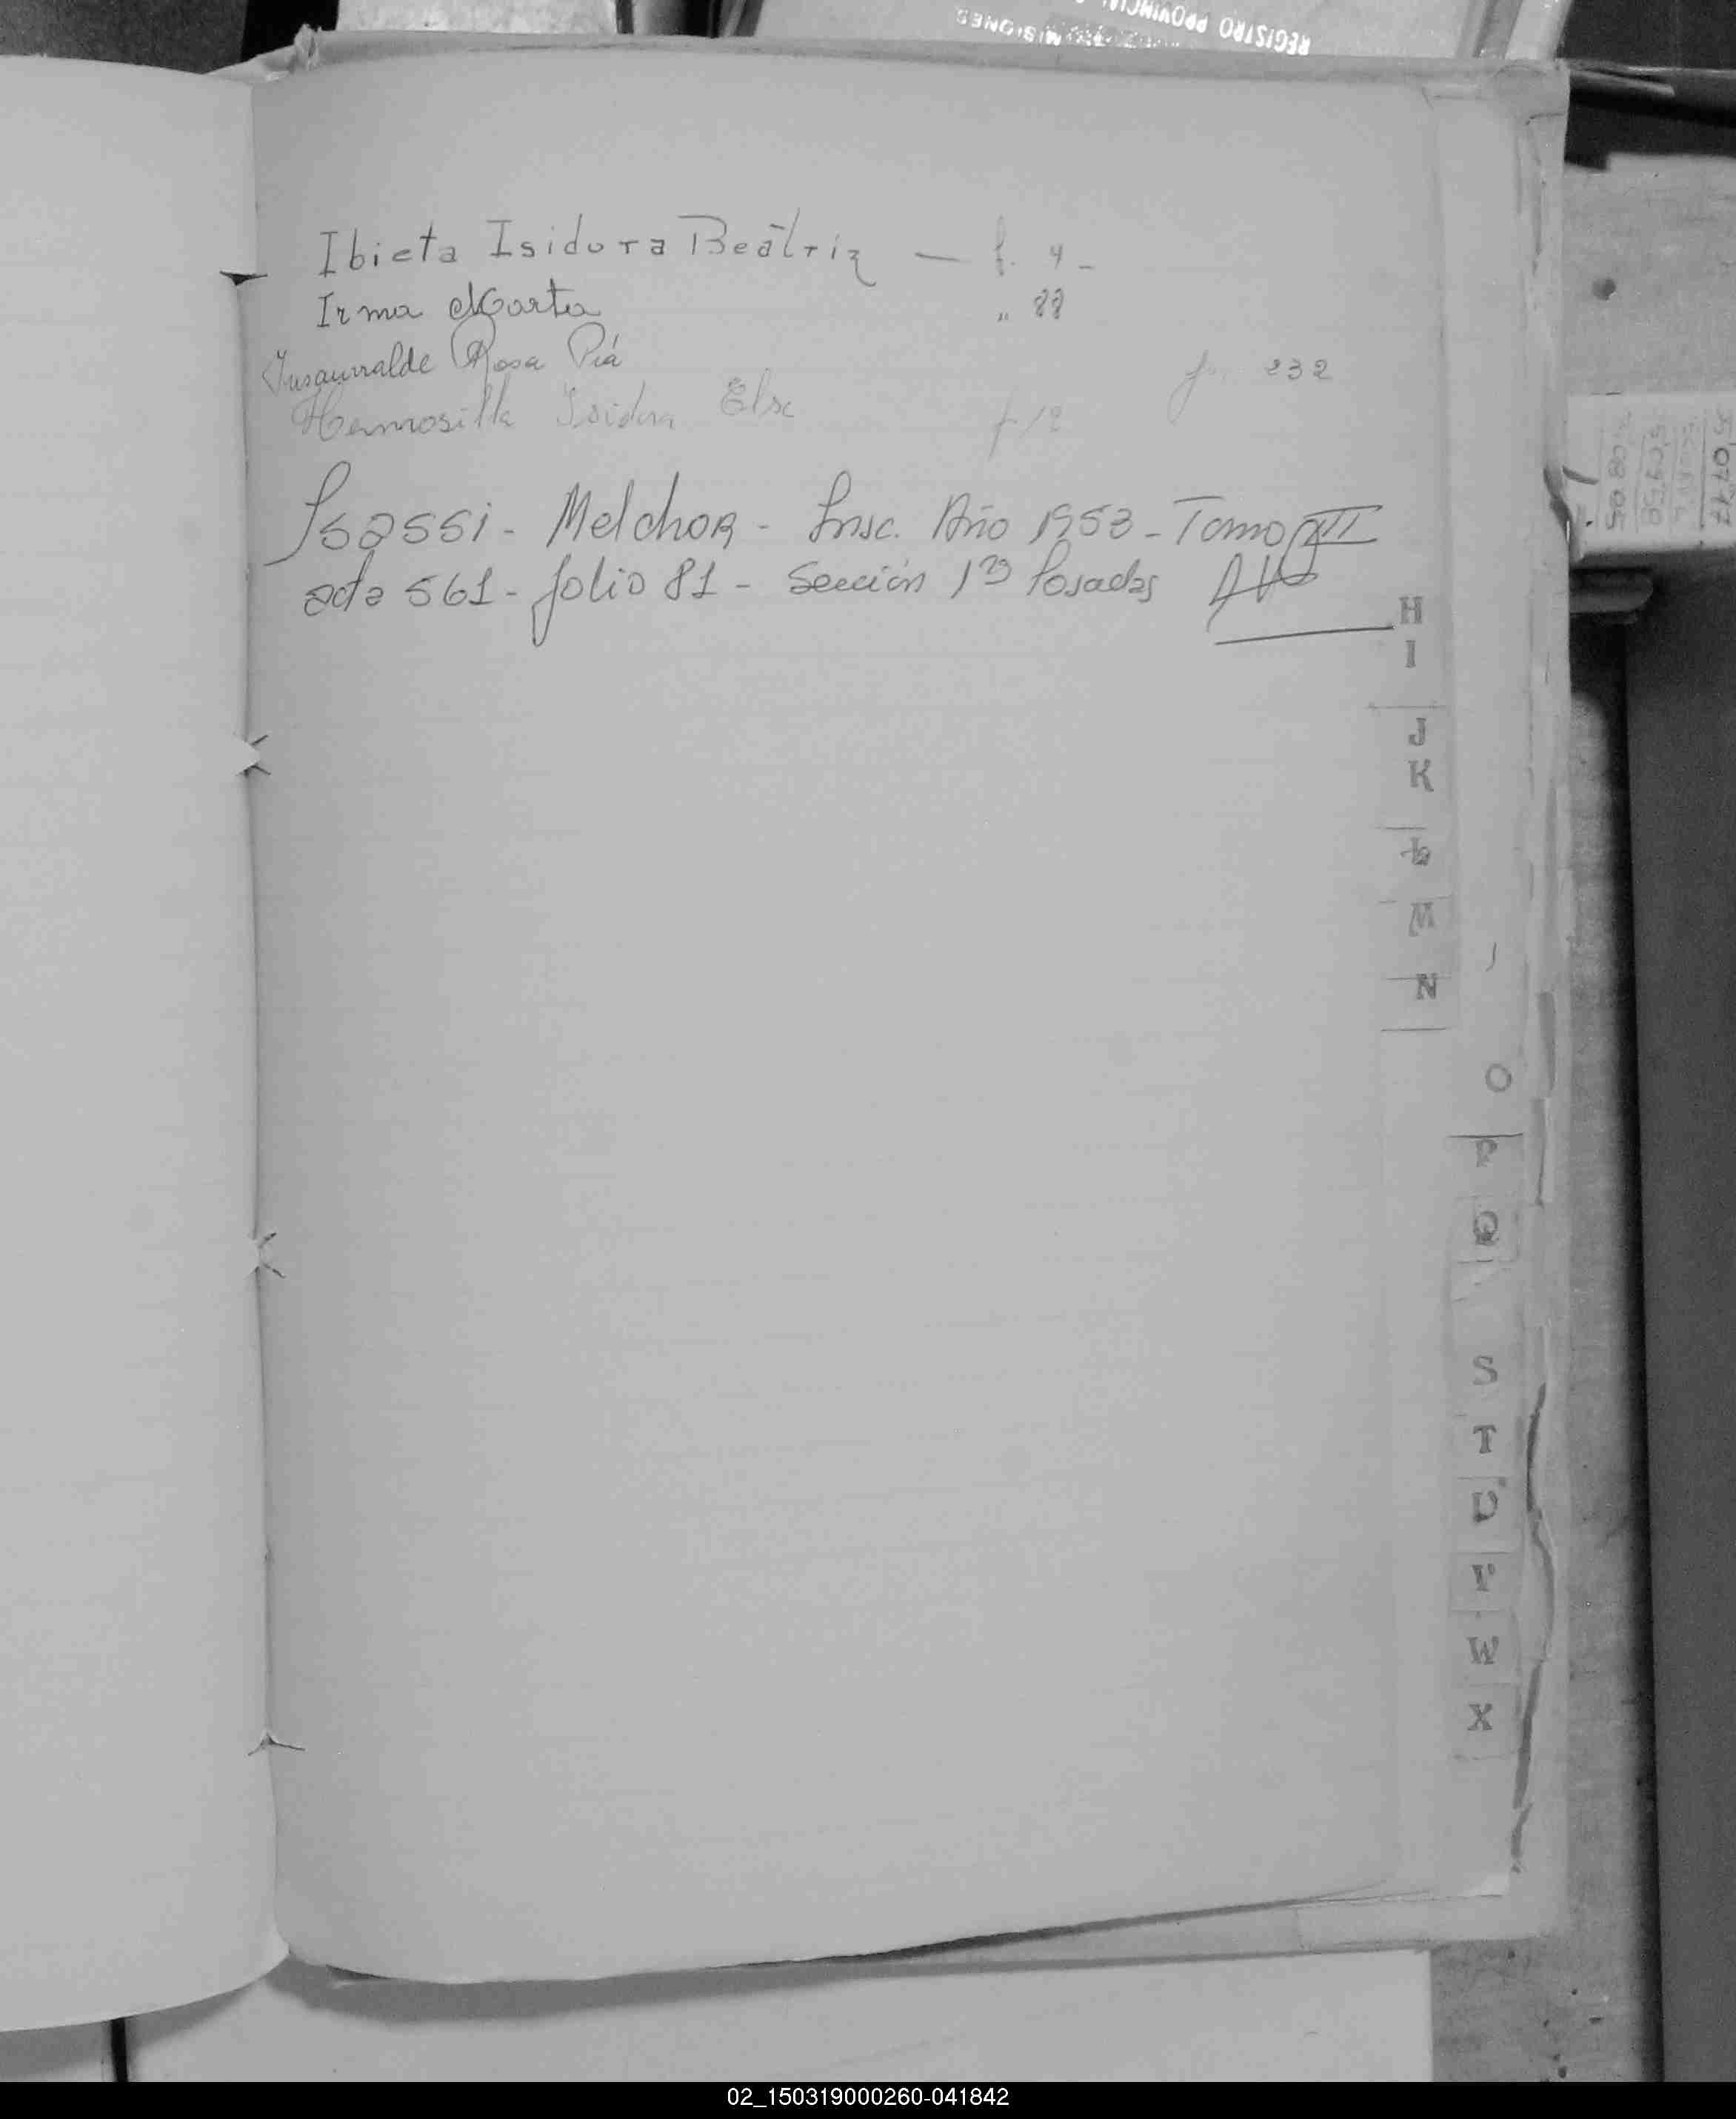 REGISTRO PROVINCIAL
MISIONES
Ibieta Isidora Beatriz — f. 4 -
Irma Marta " 88
Insaurralde Rosa Piá f. 232
Hermosilla Isidora Elsa f 12
Isassi - Melchor - Insc. Año 1953 - Tomo III
acta 561 - folio 81 - Sección 1ra Posadas
H
I
J
K
L
M
N
O
P
Q
S
T
U
V
W
X
02_150319000260-041842